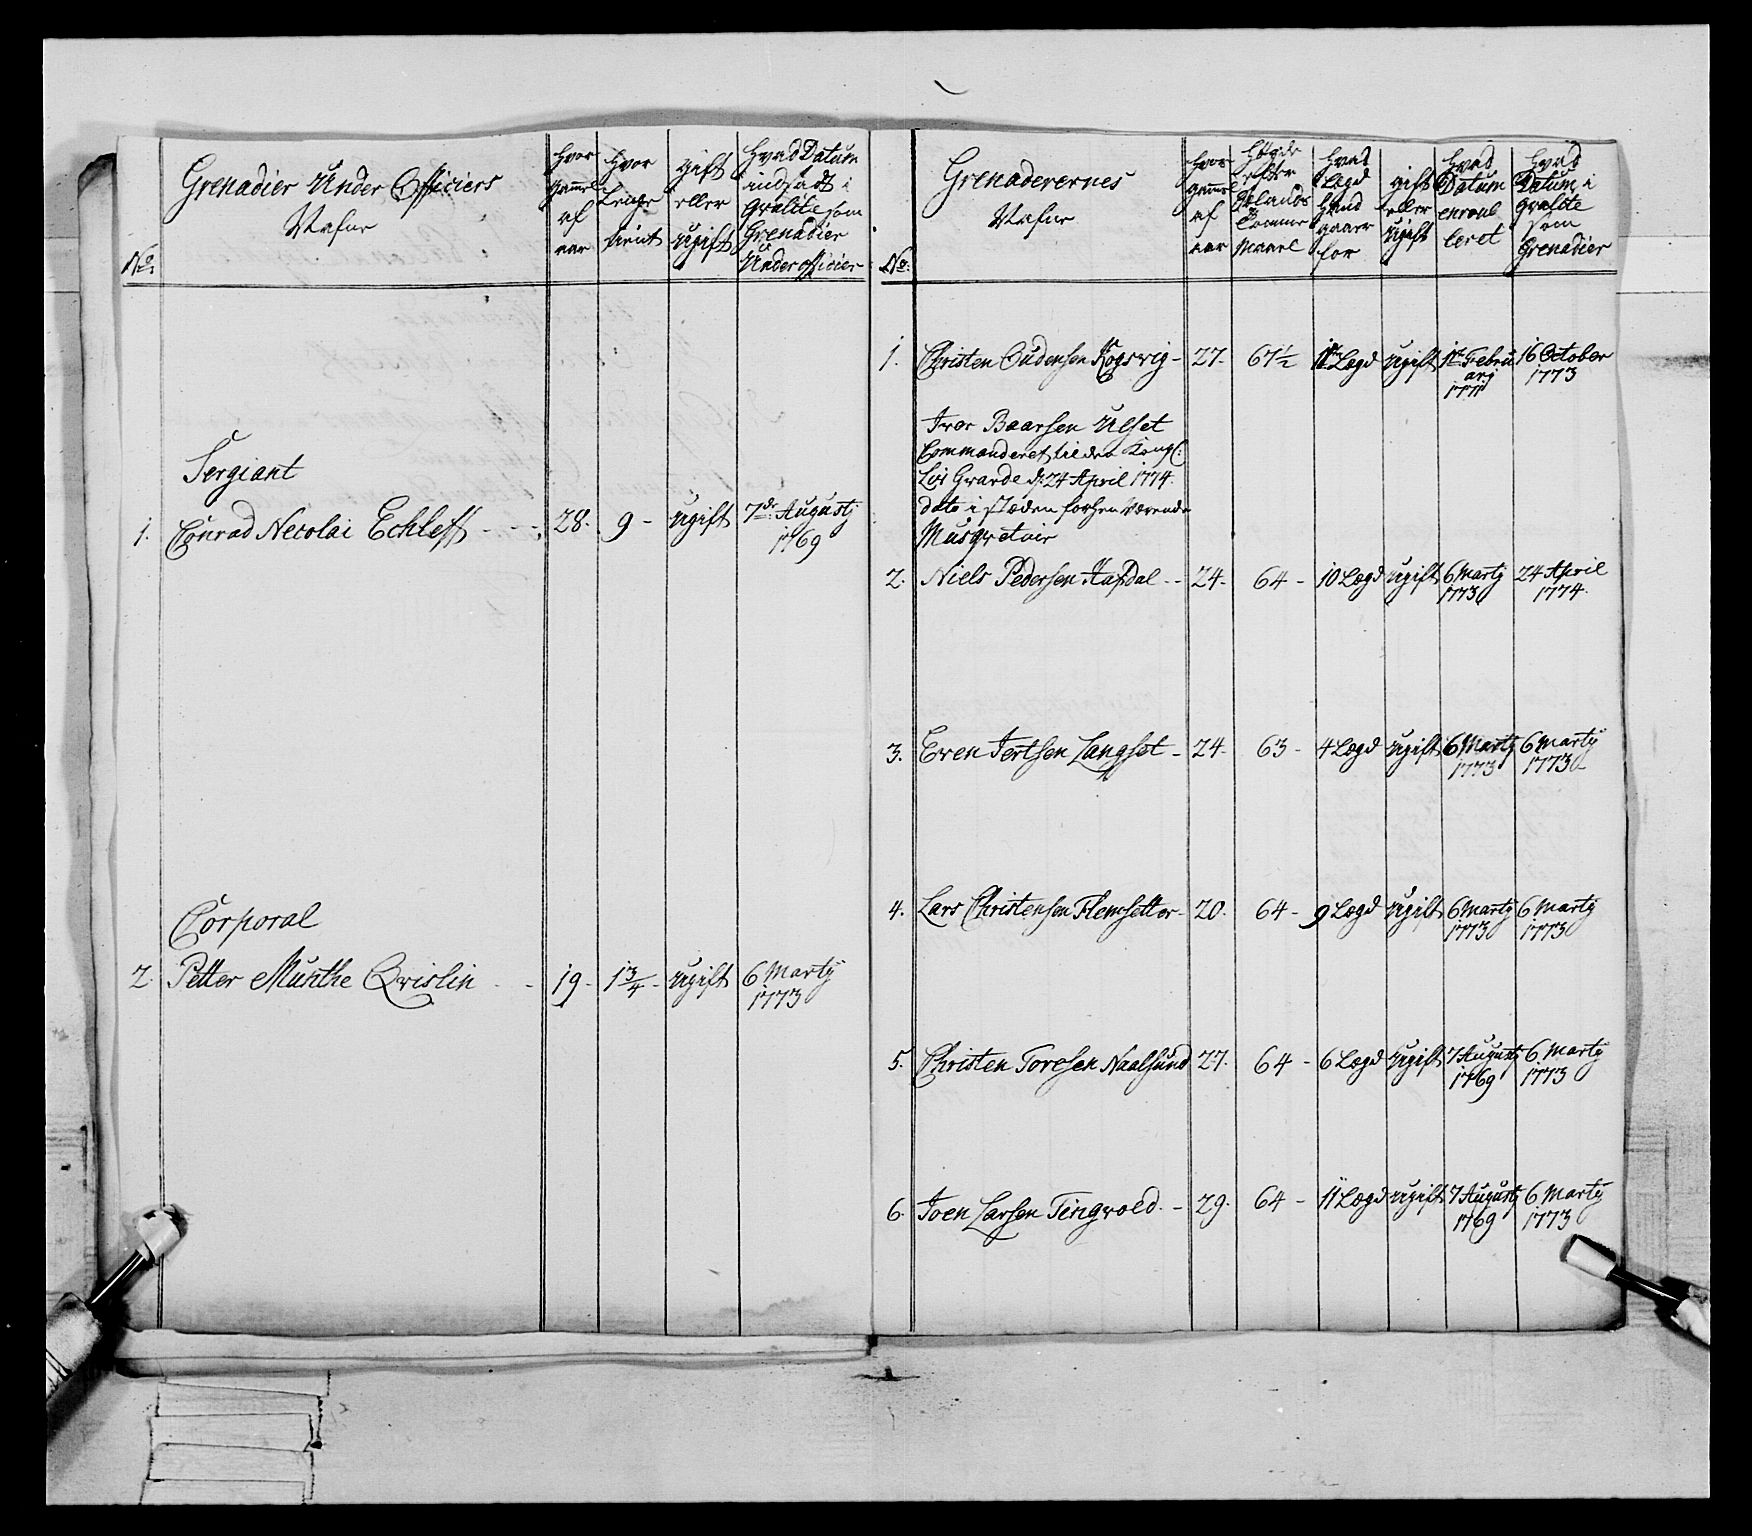 Grenadier Under Officiers
Nafne
No:
hvor
gammel
af
aar
hvor
lenge
tient
gift
eller
ugift
hvad Datum
indsadt i
qvalite som
Grenadier
Under officier
Sergiant
1. Conrad Necolai Eckleff - - - 28. 9 - ugift 7de Augustj
1769
Corporal
2. Petter Munthe Qvislin - - 19 - 1 3/4 - ugift 6 Martij
1773
Grenaderernes
Nafne
No:
hvor
gammel
af
aar
Høyde
efter
Lomme
Maael
hvad
Lægd
hand
gaaer
for
gift
eller
ugift
hvad
Datum
enroul
leret
hvad
Datum i
qvalite
som
Grenadier
1. Christen Oudensen Kogsvig - 27. 67 1/2 Lægd ugift 1te Febru 16 October
arj 1773
1771
Iver Baarsen Ulset
Commanderet til den Kongl:
Liv Gvarde d: 24 April 1774.
dato i stæden forhen værende
Musqvetair
2. Niels Pedersen Aafdal - - 24. 64 - 10 Lægd ugift 6 Martj 24 April
1773 1774.
3. Even Iertsen Langset - 24. 63 - 4 Lægd ugift 6 Martj 6 Martij
1773 1773
4. Lars Christensen Flemsetter - 20. 64 - 9 Lægd ugift 6 Martj 6 Martj
1773 1773
5. Christen Toresen Naalsund 27. 64 - 6 Lægd ugift 7 Augustj 6 Martij
1769 1773
6. Joen Larsen Tingvold. - 29. 64 - 11 Lægd ugift 7 Augustj 6 Martij
1769 1773